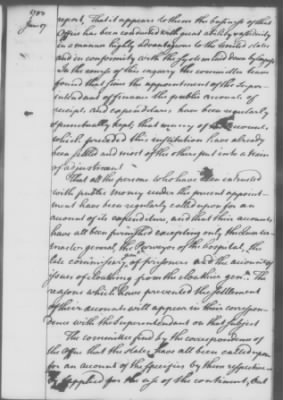 1783
June 17
report, That it appears to them the business of that
Office has been conducted with great ability & fidelity
in a manner highly advantageous to the United States
and in conformity with the system laid down by Congress
In the course of this enquiry the committee have
found that since the appointment of the Super-
intendant of finance the public accounts of
receipts and expenditures have been regularly
& punctually kept, that many of the accounts,
which preceded this institution have already
been settled and most of the others put into a train
of adjustment
That all the persons who have been entrusted
with public money under the present appoint-
ment have been regularly called upon for an
account of its expenditure, and that their accounts
have all been furnished excepting only the quarter
master general, the Purveyor of the hospital, the
late commissary genl of prisoners and the accounts of
issues of cloathing from the cloathier genl. The
reasons which have prevented the settlement
of their accounts will appear in their correspon-
dence with the Superintendant on that subject
The committee find by the correspondence of
the Office that the States have all been called upon
for an account of the specifics by them respective-
ly supplied for the use of the continent, but